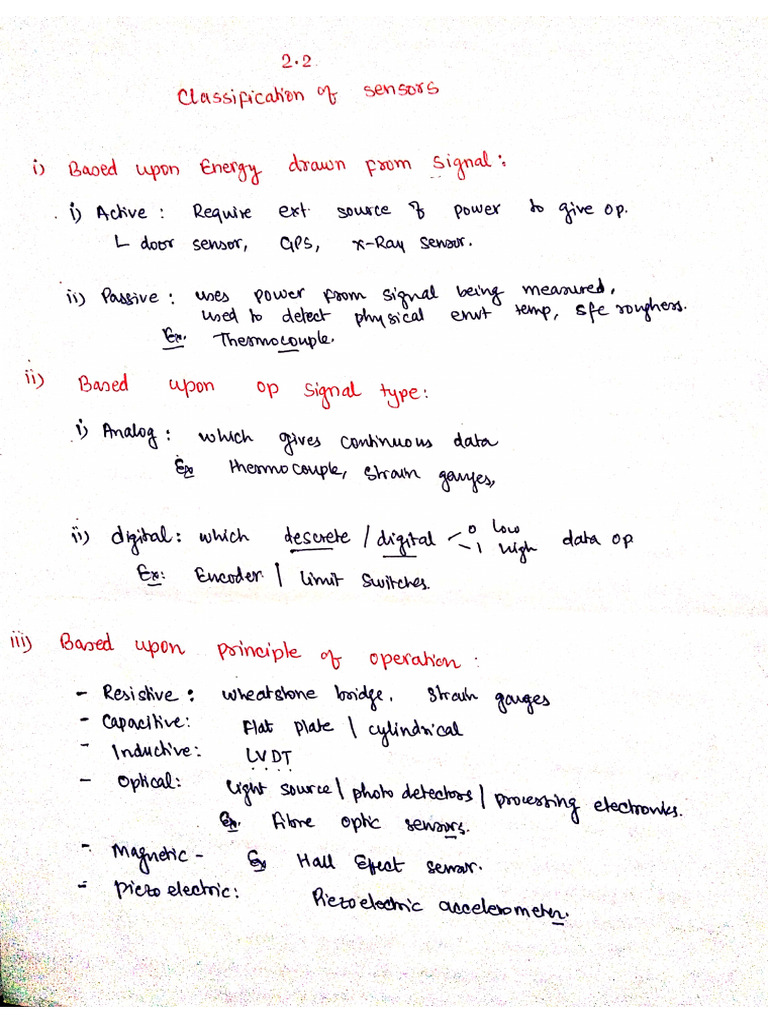 2.2
Classification of sensors
i) Based upon Energy drawn from signal:
i) Active: Require ext source of power to give op.
L door sensor, GPS, x-Ray sensor.
ii) Passive: uses power from signal being measured,
used to detect physical envt temp, sfc roughess.
Ex. Thermocouple.
ii) Based upon op signal type:
i) Analog: which gives continuous data
Ex thermocouple, strain gauges,
ii) digital: which descrete / digital 0 low 1 high data op
Ex: Encoder | limit switches.
iii) Based upon principle of operation:
- Resistive: wheatstone bridge, strain gauges
- Capacitive: Flat plate | cylindrical
- Inductive: LVDT
- Optical: Light source | photo detectors | processing electronics.
Ex. Fibre optic sensors.
- Magnetic - Ex Hall Effect sensor.
- Piezo electric: Piezoelectric accelerometer.